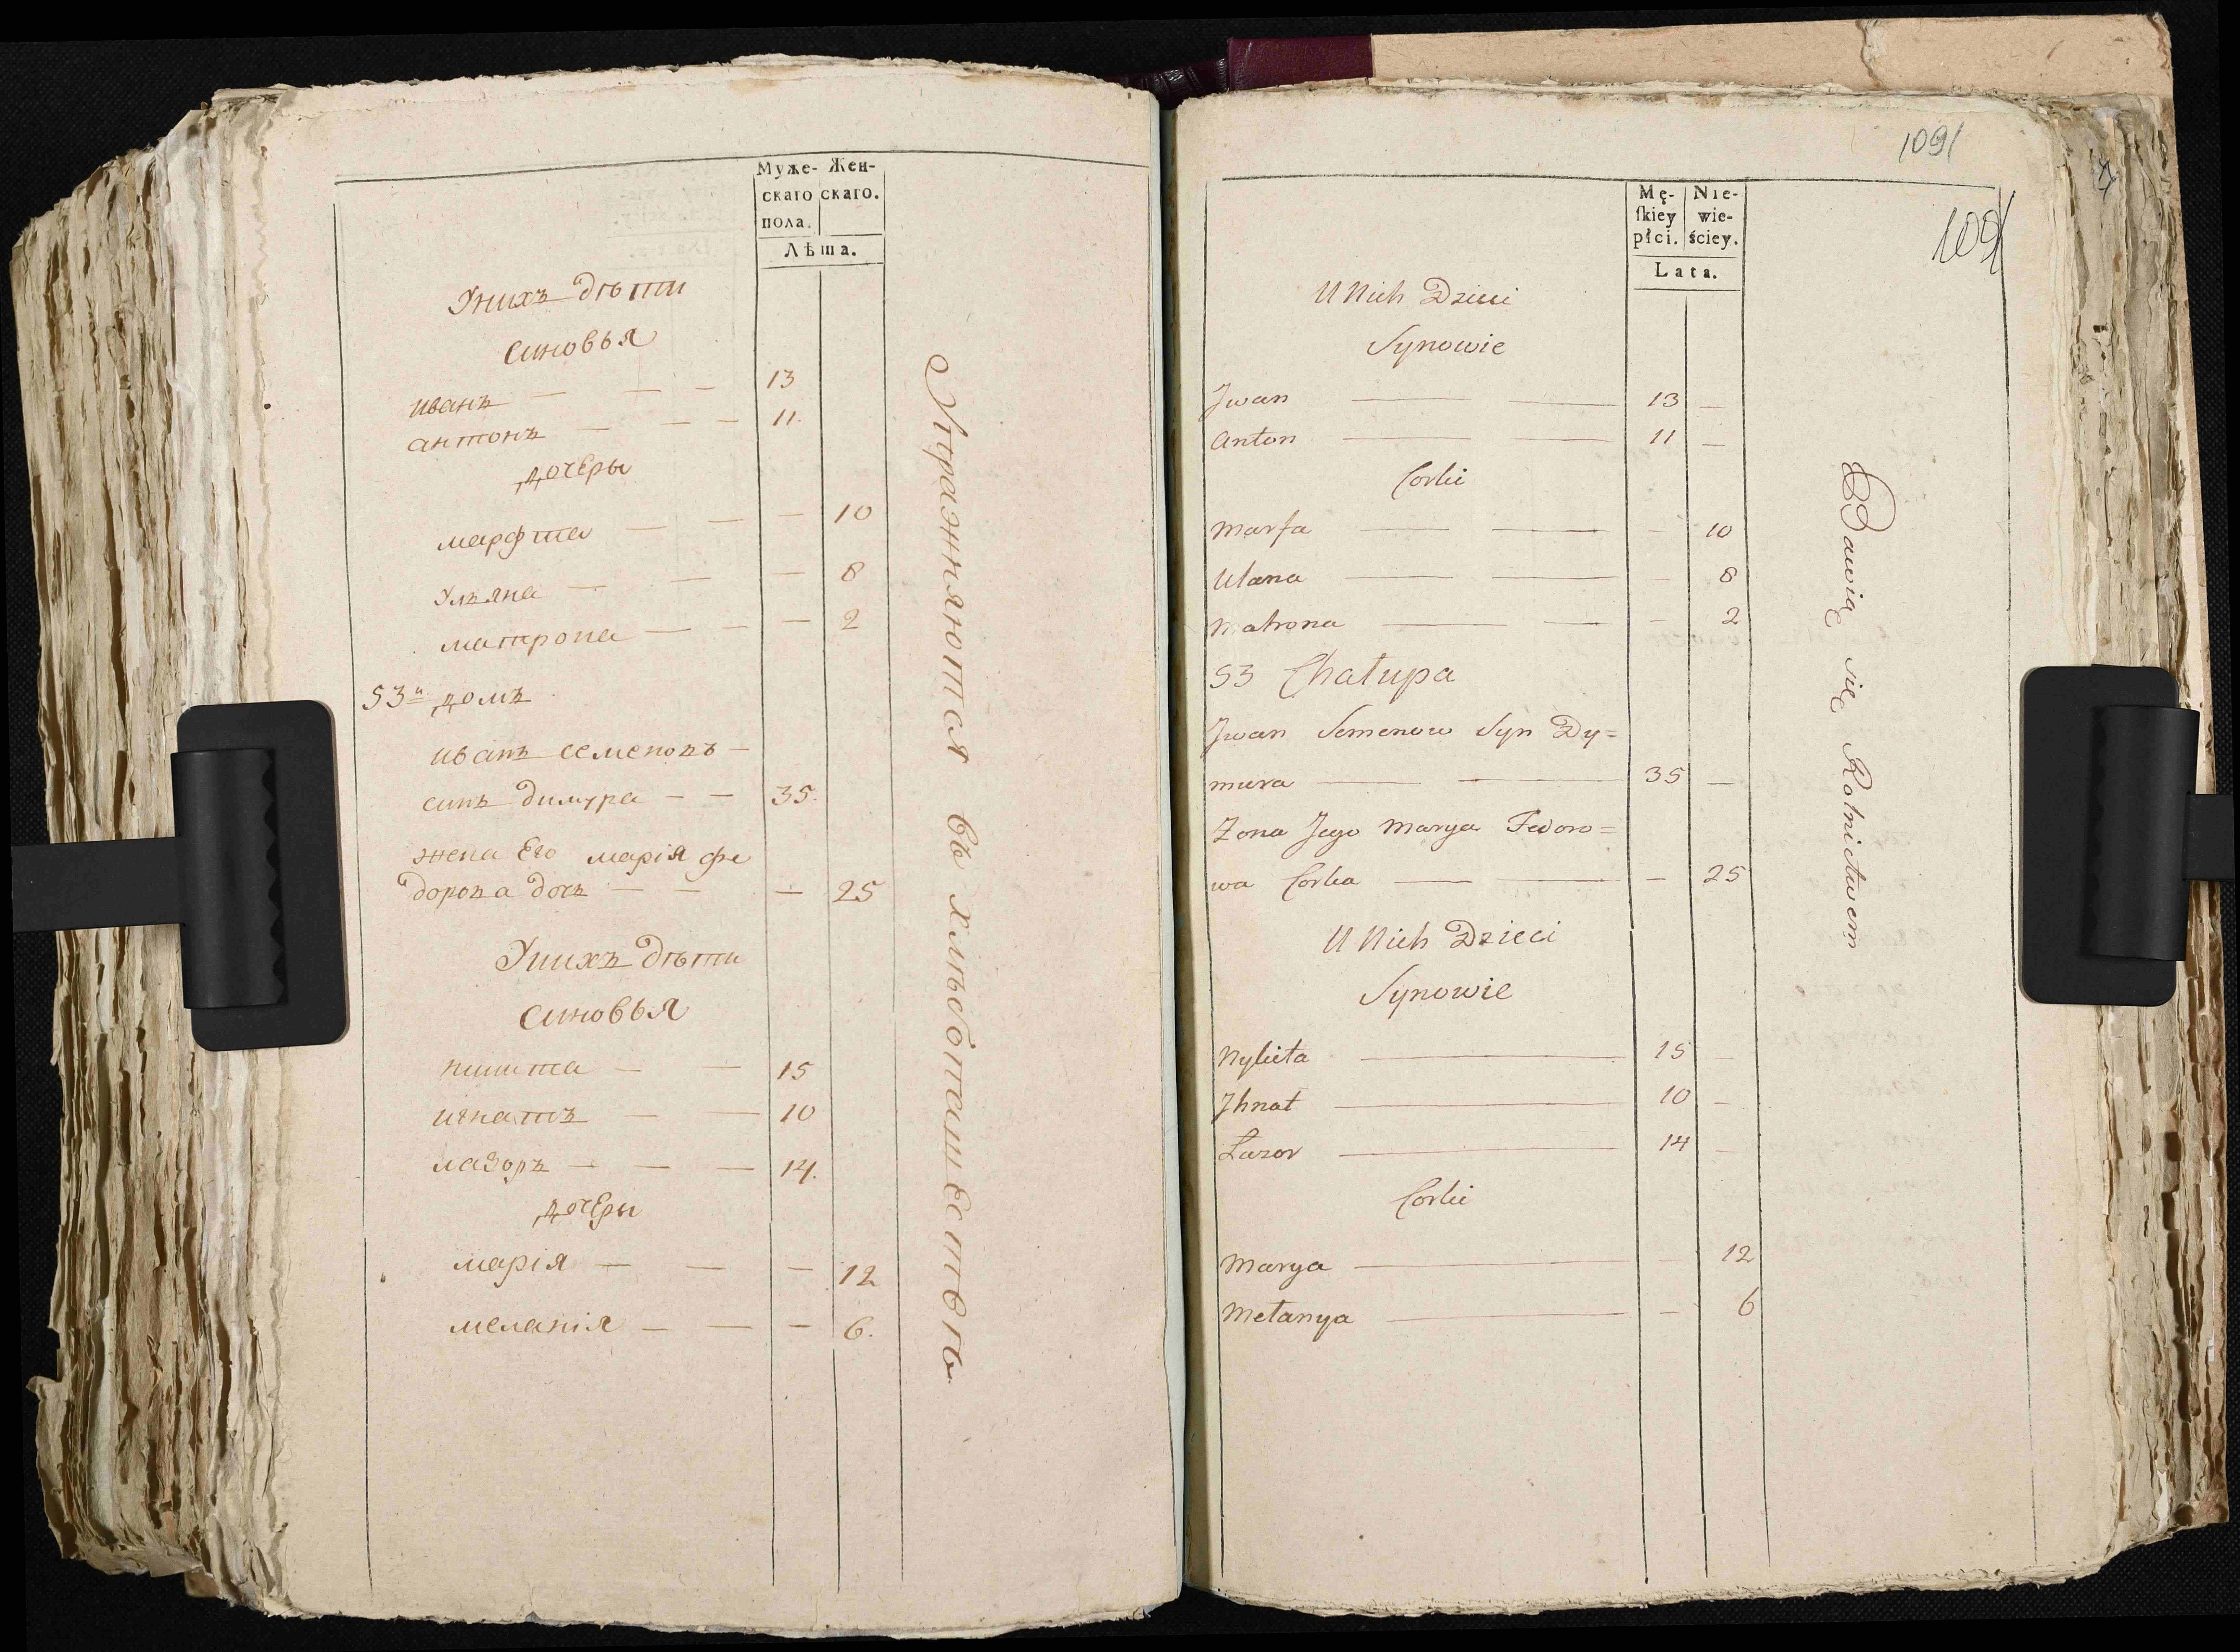 Муже- Жен-
скаго скаго.
пола.
Лѣта.
Унихъ дѣти
синовья
иванъ — — — 13
антонъ — — — 11.
дочеры
марфта — — — 10
Ульяна — — — 8
матрона — — — 2
53й домъ
иванъ семеновъ —
синъ димура — — 35.
жена Его марія фе
дорова дочъ — — — 25
Унихъ дѣти
синовья
никита — — 15
игнатъ — — 10
лазоръ — — — 14.
дочеры
марія — — — 12
меланія — — — 6.
Упражняются въ хлѣбопашествѣ
1091
1091
Mę- Nie-
ſkiey wie-
płci. ściey.
Lata.
U Nich Dzieci
Synowie
Jwan — — 13 —
Anton — — 11 —
Corki
Marfa — — — 10
Ulana — — — 8
Matrona — — — 2
53 Chałupa
Jwan Semenow Syn Dy=
mura — — 35 —
Zona Jego Marya Fedoro=
wa Corka — — — 25
U Nich Dzieci
Synowie
Nykita — 15
Jhnat — 10 —
Łazor — 14 —
Corki
Marya — — 12
Mełanya — — 6
Bawią się Rolnictwem